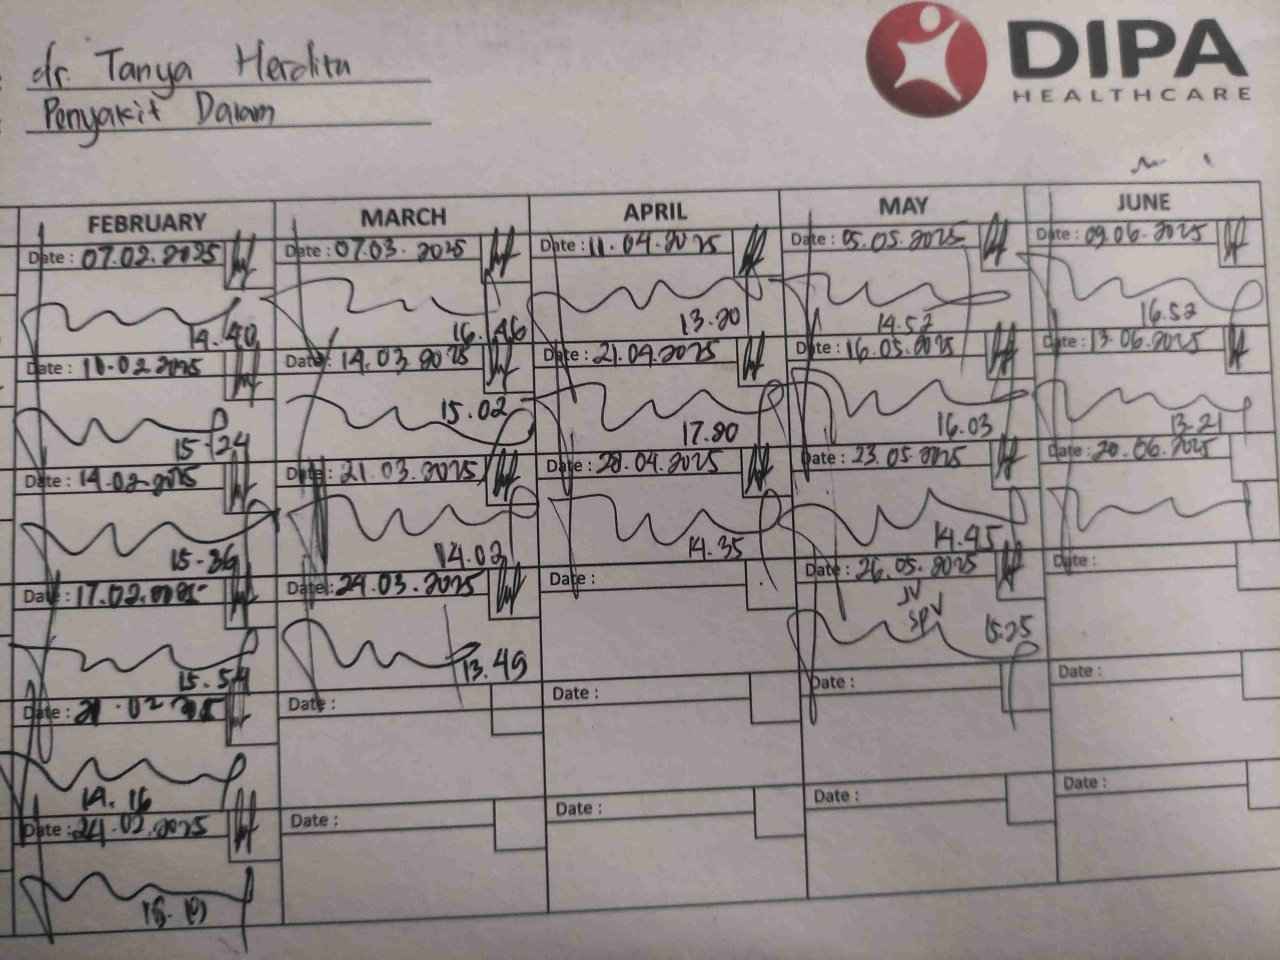 dr. Tanya Herdita
Penyakit Dalam
DIPA
HEALTHCARE
FEBRUARY MARCH APRIL MAY JUNE
Date : 07.02.2025 Date : 07.03.2025 Date : 11.04.2025 Date : 05.05.2025 Date : 09.06.2025
14.40 16.46 13.20 14.52 16.52
Date : 10.02.2025 Date : 14.03.2025 Date : 21.04.2025 Date : 16.05.2025 Date : 13.06.2025
15.24 15.02 17.20 16.03 13.21
Date : 14.02.2025 Date : 21.03.2025 Date : 28.04.2025 Date : 23.05.2025 Date : 20.06.2025
15.36 14.02 14.35 14.45
Date : 17.02.2025 Date : 24.03.2025 Date : Date : 26.05.2025 Date :
JV
SPV
15.54 13.49 15.25
Date : 21.02.2025 Date : Date : Date : Date :
14.16
Date : 24.02.2025 Date : Date : Date : Date :